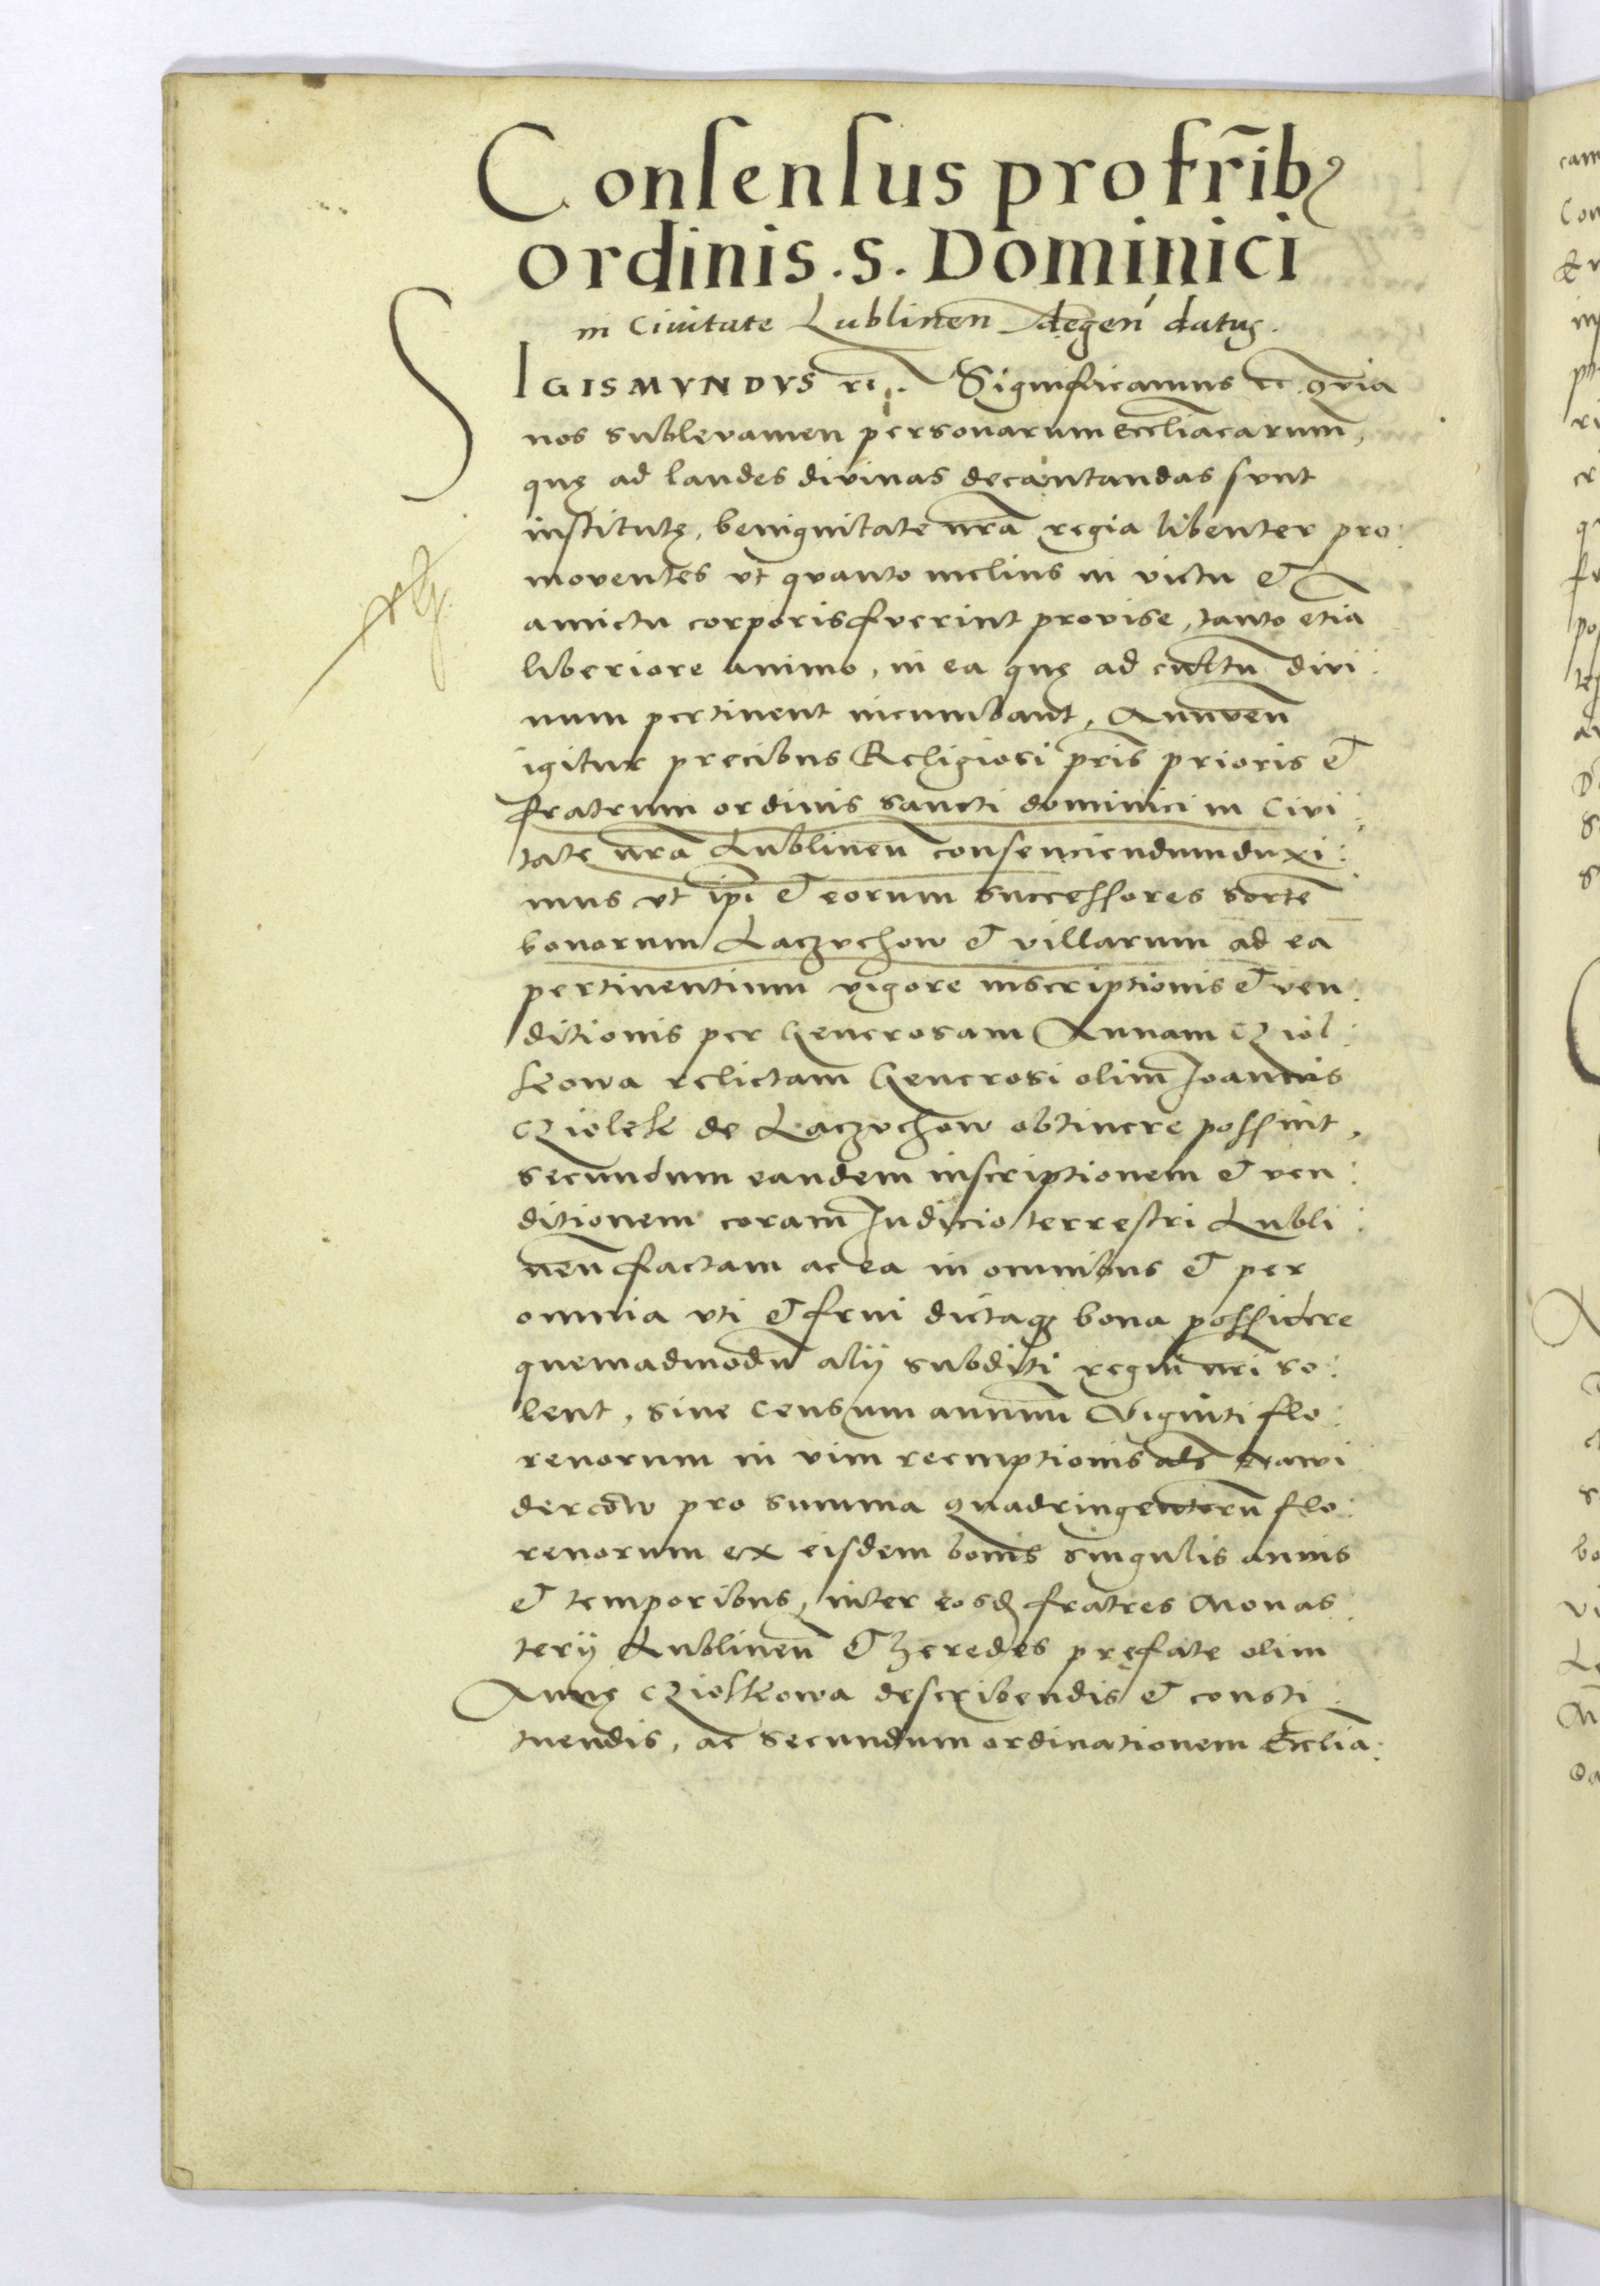 Consensus pro fr̃ib⁹
ordinis . s . Dominici
in Ciuitate Lublineñ degeñ datus .
SIGISMVNDVS rc̃ . Significamus rc̃ qvia
nos sublevamen personarum eccl̃iacarum̃,
quę ad laudes divinas decantandas svnt
institutę, benignitate nr̃a regia libenter pro:
moventes vt qvanto melius in victu et
amictu corporis fverint provise, tanto etiã
liberiore animo, in ea quę ad cultũ divi:
num pertinent incumbant, Annveñ
igitur precibus Religiosi pr̃is prioris et
fratrum ordinis sancti dominici in Civi:
tate nr̃a Lublineñ consenciendum duxi:
mus vt ip̃i et eorum successores sortẽ
bonorum Laczvchow et villarum ad ea
pertinentium vigore inscriptionis et ven:
ditionis per Generosam Annam Cziol:
kowa relictam Generosi olim̃ Joannis
Cziolek de Laczvchow obtinere possint,
secundum eandem inscriptionem et ven:
ditionem coram̃ Judicio terrestri Lubli:
neñ factam ac ea in omnibus et per
omnia vti et frui dictaq₃ bona possidere
quemadmodũ alÿ subditi regni nr̃i so:
lent, sine censum annuũ Viginti flo:
renorum in vim reemptionis al̃s nawi
dercow pro summa quadringentorũ flo:
renorum ex eisdem bonis singulis annis
et temporibus, inter eosd̃ fratres Monas:
terÿ Lublineñ et heredes pręfate olim
Annę Cziolkowa describendis et consti:
tuendis, ac secundum ordinationem Eccl̃ia: